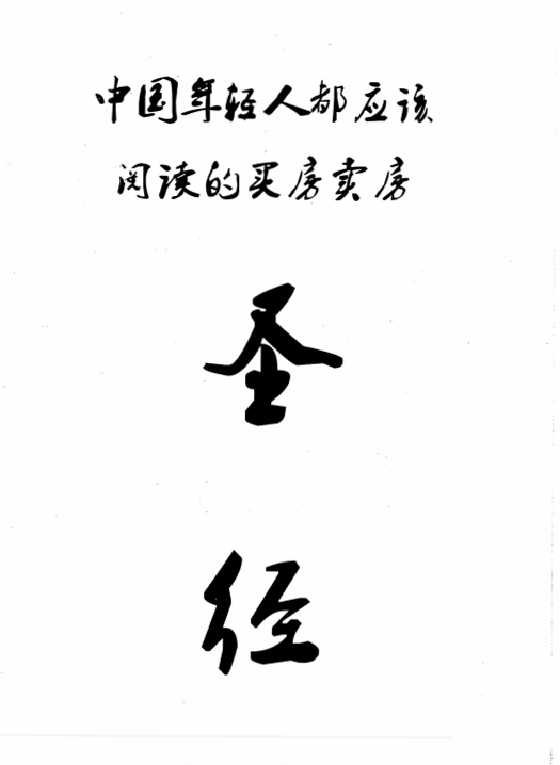 中国年轻人都应该
阅读的买房卖房
圣
经